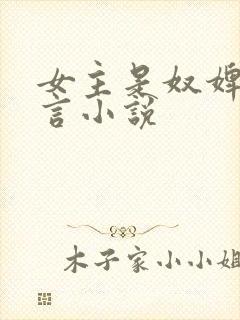 女主是奴婢
言小说
木子家小小姐